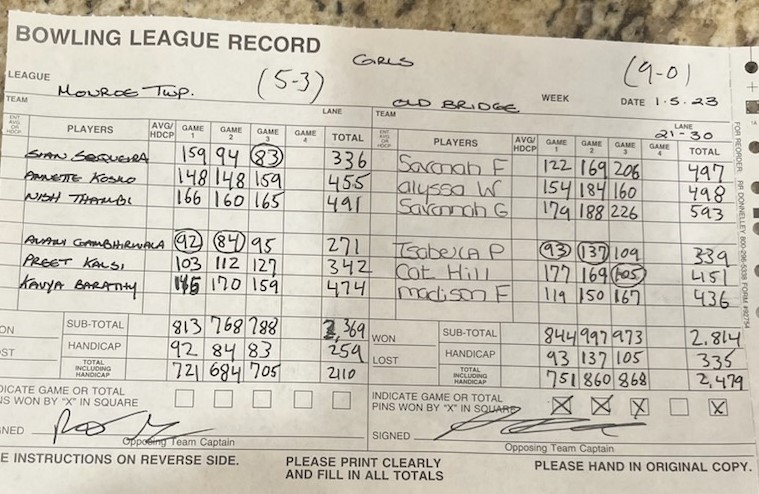 BOWLING LEAGUE RECORD
GIRLS
LEAGUE MONROE TWP. (5-3) (9-0)
TEAM LANE TEAM OLD BRIDGE WEEK DATE 1-5-23
PLAYERS AVG/HDCP GAME 1 GAME 2 GAME 3 GAME 4 TOTAL PLAYERS AVG/HDCP GAME 1 GAME 2 GAME 3 GAME 4 LANE 21-30 TOTAL
159 94 83 336 Savanah F 122 169 206 497
ANNETTE 148 148 159 455 alyssa W 154 184 160 498
NISH THAMBI 166 160 165 491 Savannah G 179 188 226 593
AVANI GAMBHIRWALA 92 84 95 271 Isabella P 93 137 109 339
PREET KALSI 103 112 127 342 Cat Hill 177 169 105 451
KAVYA BARATHY 145 170 159 474 madison F 119 150 167 436
ON SUB-TOTAL 813 768 788 2,369 WON SUB-TOTAL 844 997 973 2,814
ST HANDICAP 92 84 83 259 LOST HANDICAP 93 137 105 335
TOTAL INCLUDING HANDICAP 721 684 705 2110 TOTAL INCLUDING HANDICAP 751 860 868 2,479
DICATE GAME OR TOTAL INDICATE GAME OR TOTAL
NS WON BY "X" IN SQUARE PINS WON BY "X" IN SQUARE X X X X
NED SIGNED
Opposing Team Captain Opposing Team Captain
E INSTRUCTIONS ON REVERSE SIDE. PLEASE PRINT CLEARLY PLEASE HAND IN ORIGINAL COPY.
AND FILL IN ALL TOTALS
FOR REORDER RR DONNELLEY 800-296-5338 FORM #92754